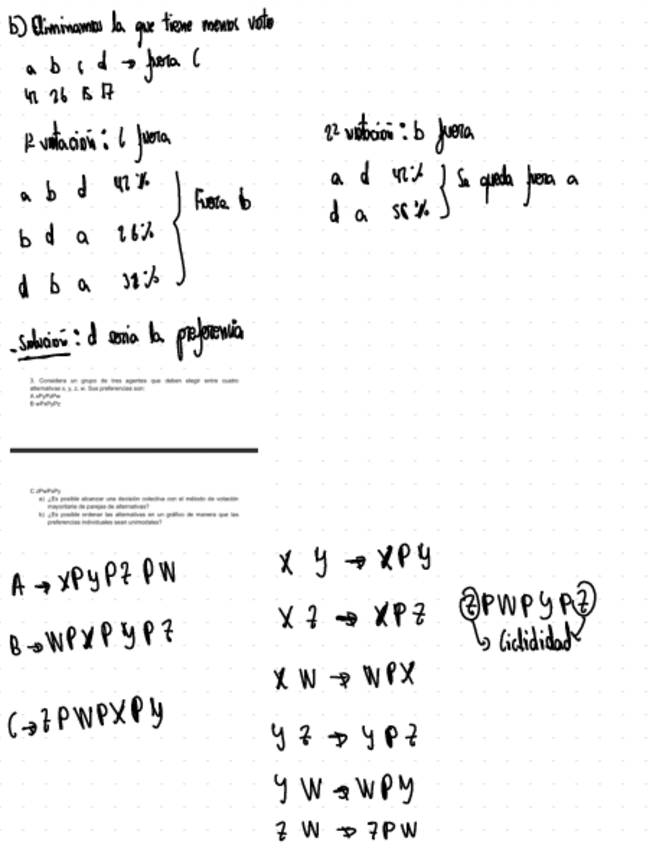 b) Eliminamos la que tiene menos voto
a b c d → fuera C
42 26 15 17
1ª votación: C fuera
a b d 42%
b d a 26%
d b a 32%
Fuera b
2ª votación: b fuera
a d 42%
d a 58%
Se queda fuera a
- Solución: d seria la preferencia
3. Considera un grupo de tres agentes que deben elegir entre cuatro
alternativas x, y, z, w. Sus preferencias son:
A xPyPzPw
B wPxPyPz
C zPwPxPy
a) ¿Es posible alcanzar una decisión colectiva con el método de votación
mayoritaria de parejas de alternativas?
b) ¿Es posible ordenar las alternativas en un gráfico de manera que las
preferencias individuales sean unimodales?
A → XPYPZPW
B → WPXPYPZ
C → ZPWPXPY
X Y → XPY
X Z → XPZ
X W → WPX
Y Z → YPZ
Y W → WPY
Z W → ZPW
ZPWPYPZ
↳ Ciclididad